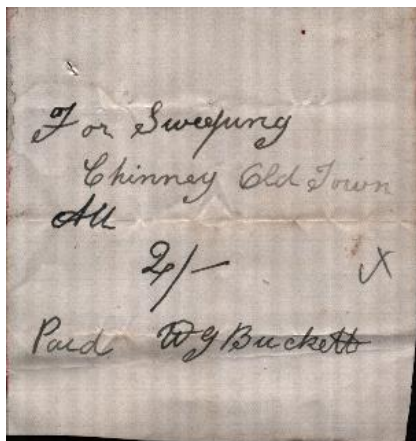 For Sweepung
Chinney Old Town
All
2/-
X
Paid W G Buckett